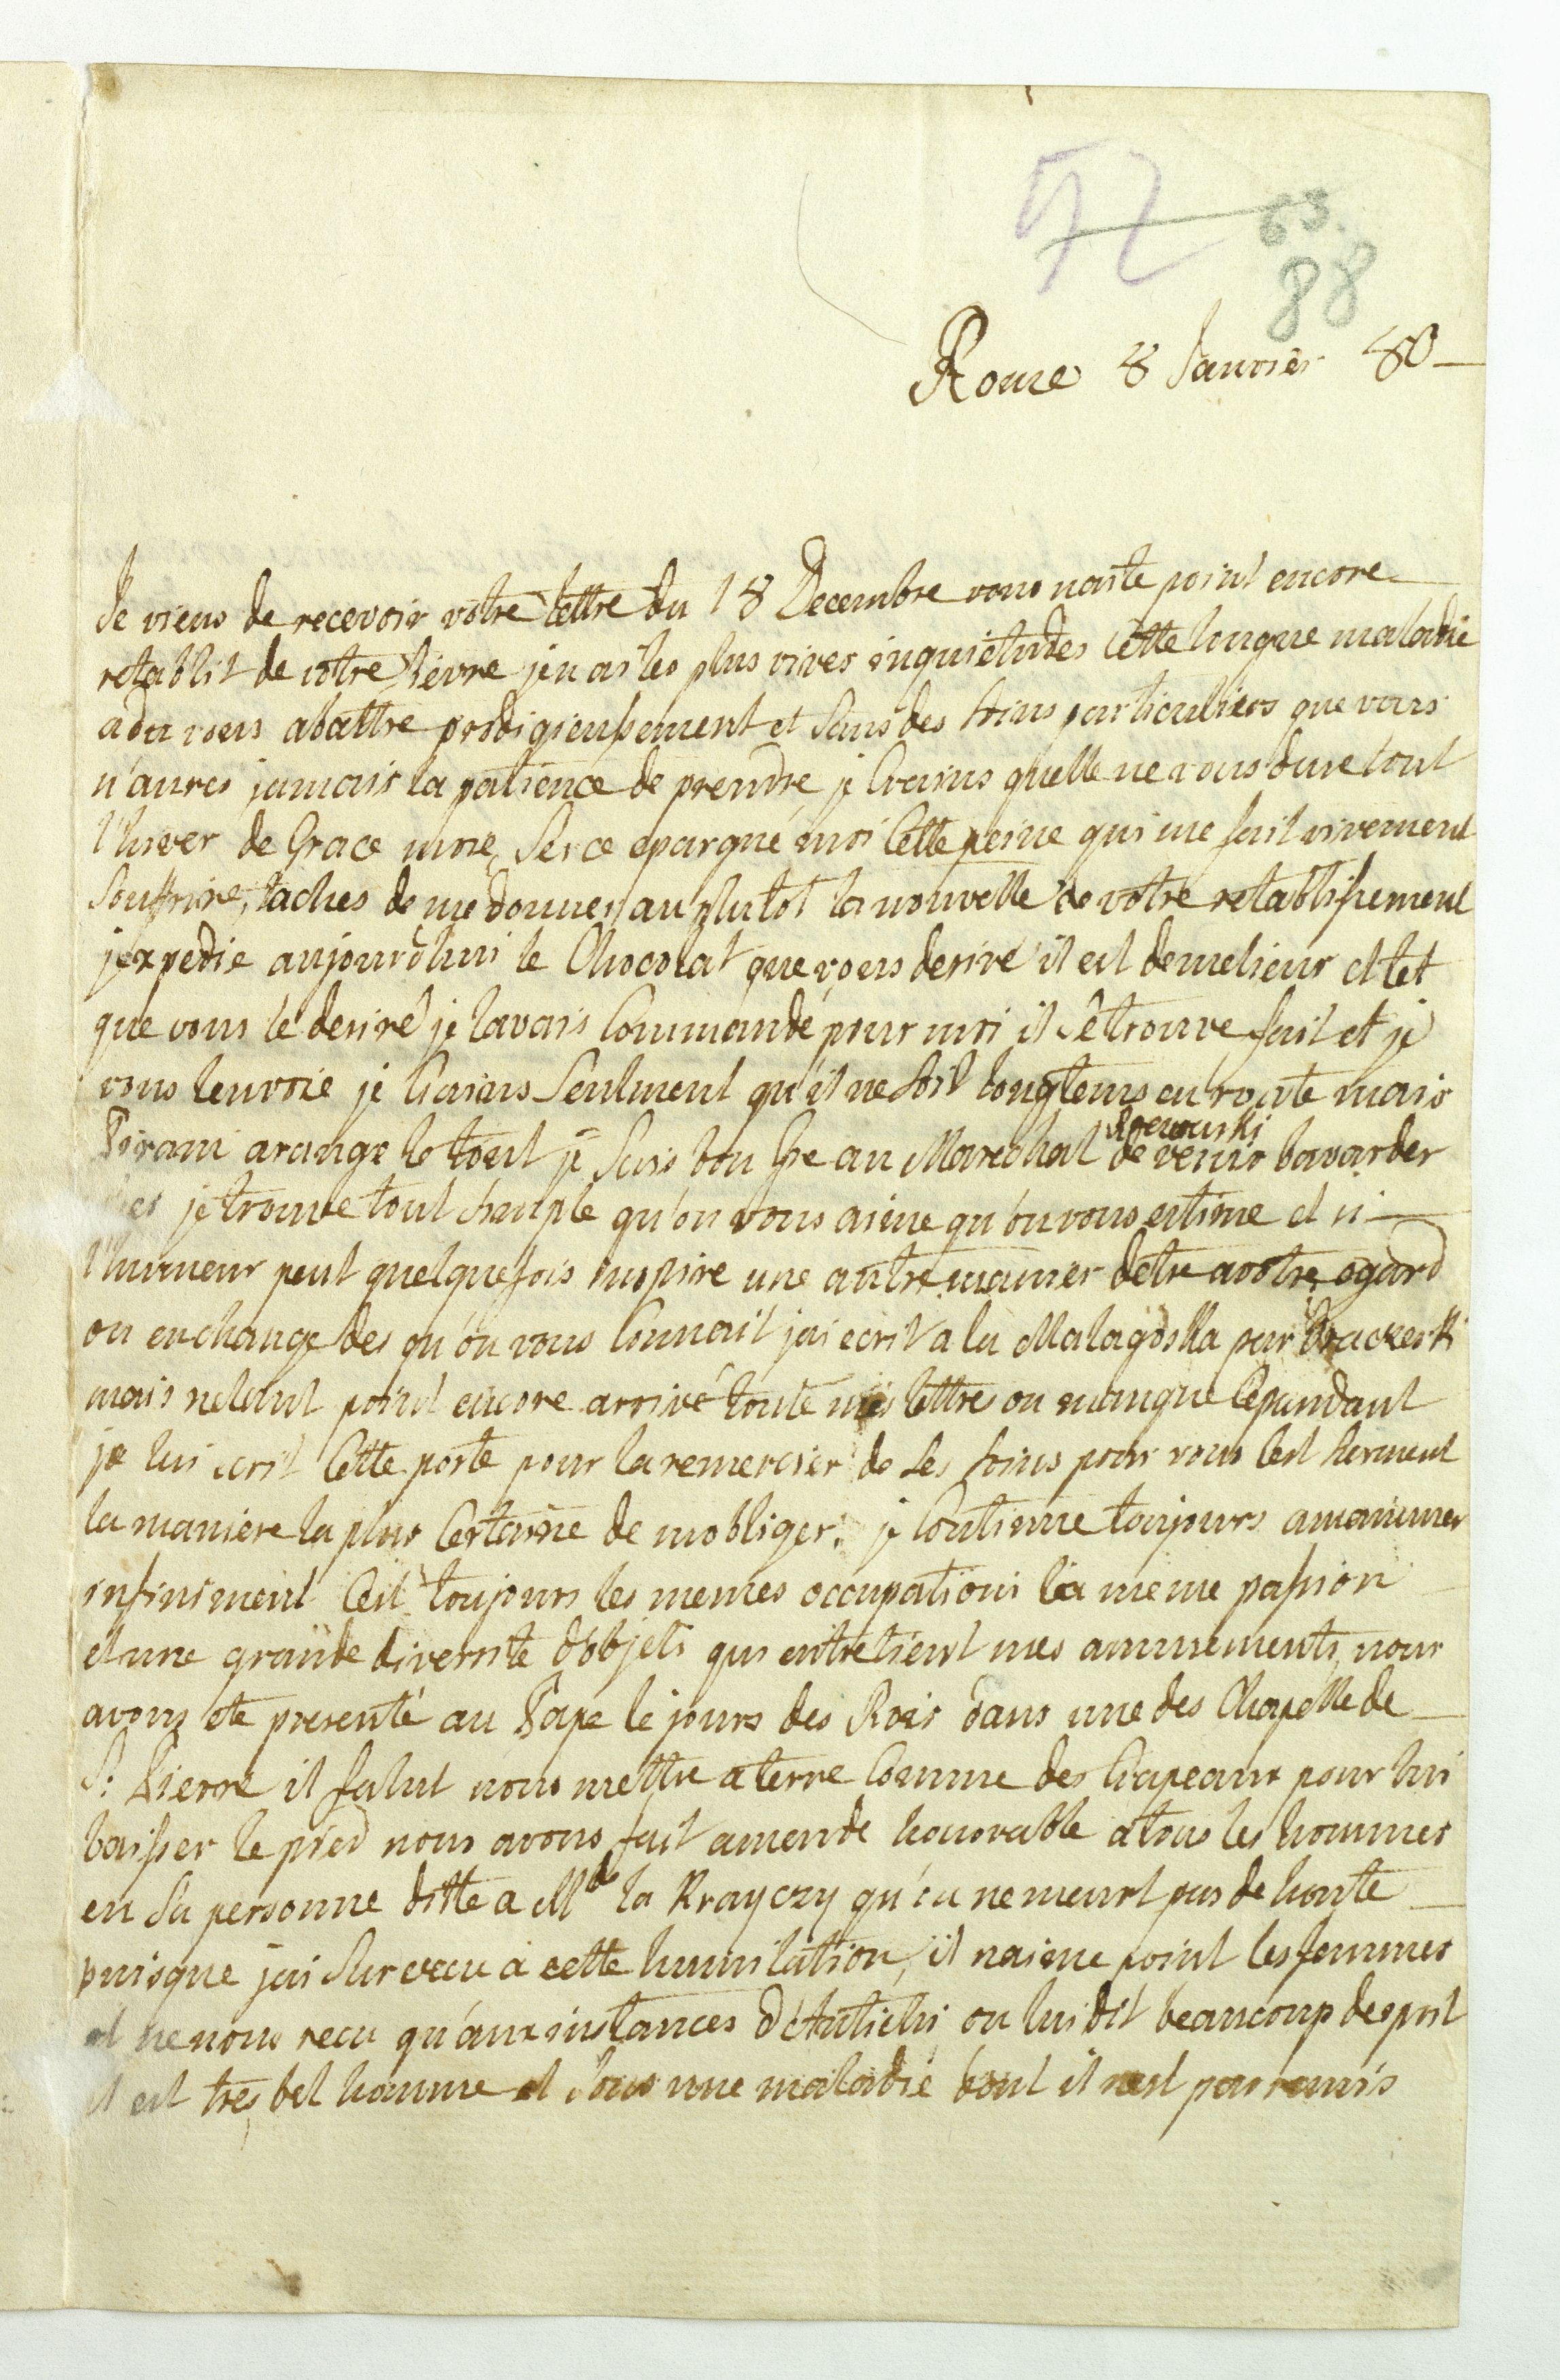 52 63.
88
Rome 8 Janvier 80
Je viens de recevoir votre lettre du 18 Decembre vous naite point encore
retablit de votre fievre jen ai les plus vives inquiétudes Cette longue maladie
a du vous abattre prodigieusement et sans des soins particuliers que vous
n'aures jamais la patience de prendre je Crains quelle ne vous dure tout
l'hiver de Grace mon Serce epargné moi Cette peine qui me fait vivement
Souffrire, taches de me donner au plutot la nouvelle de votre retablissement
jexpedie aujourdhui le Chocolat que vous desiré il est demelieur et tel
que vous le desiré je lavais Commandé pour moi il sêtrouve fait et je
vous lenvoie je Crains Seulment qu'il ne soit longtems en route mais
Tirani arange le tout je Sais bon Gre au Marechal Rzewuski de venir bavarder
je trouve tout simple qu'on vous aime qu'on vous estime et si
l'humeur peut quelquefois inspire une autre manier detre a votre egard
on en change des qu'on vous Connait jai ecrit a la Malagoska par
mais netant point encore arrivé toute mes lettres on manque Cepandant
je lui ecrit Cette poste pour la remercier de ses soins pour vous Cest surment
la maniere la plus Certaine de mobliger. je Continue toujours a mamuser
infiniment Cest toujours les memes occupations la meme passion
et une grande diversité d'objets qui entretient mes amusements, nous
avons ete presenté au Pape le jours des Rois dans une des Chapelle de
S: Pierre il falut nous mettre a terre Comme des Crapeaux pour lui
baisser le pied nous avons fait amende honorable a tous les hommes
en Sa personne ditte a Mde la Krayczy qu'on ne meurt pas de honte
puisque jai Survecu a cette humilation, il naime point les femmes
et ne nous recu qu'aux instances d'Antichi on lui dit beaucoup desprit
il est tres bel homme et Sous une maladie dont il nest pas remis